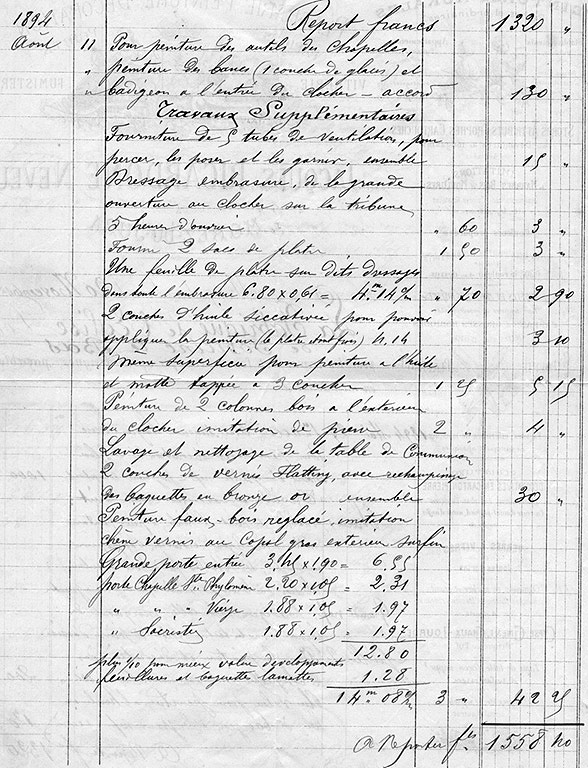 1894 Report francs 1320 "
Août 11 Pour peinture des autels des Chapelles,
" peinture des bancs (1 couche de glacis) et
" badigeon a l'entrée du clocher - accord 130 "
Travaux Supplémentaires
Fourniture de 5 tubes de ventilation, pour
percer, les poser et les garnir, ensemble 15 "
Dressage embrasure, de la grande
ouverture au clocher sur la tribune,
5 heures d'ouvrier " 60 3 "
Fourni 2 sacs de platre 1 50 3 "
Une feuille de platre sur dits dressages
dans toute l'embrasure 6.80 x 0,61 = 4m 14 " 70 2 90
2 couches d'huile siccativée pour pouvoir
appliquer la peinture (le platre étant frais) 4.14 3 10
Même superficie pour peinture a l'huile
et matte tappée a 3 couches 1 25 5 15
Peinture de 2 colonnes bois a l'exterieur
du clocher imitation de pierre 2 " 4 "
Lavage et nettoyage de la table de Communion
2 couches de vernis Flatting, avec rechampissage
des baguettes en bronze or ensemble 30 "
Peinture faux-bois reglacé, imitation
chêne vernis au Copal gras exterieur surfin
Grande porte entrée 3.45 x 1.90 = 6.55
porte Chapelle Ste Phylomène 2.20 x 1.05 = 2.31
" " " Vierge 1.88 x 1.05 = 1.97
" Sacristie 1.88 x 1.05 = 1.97
12.80
plus 1/10 pour mieux value developpements
feuillures et baguettes 1.28
14m 08 3 " 42 25
A Reporter fcs 1558 40